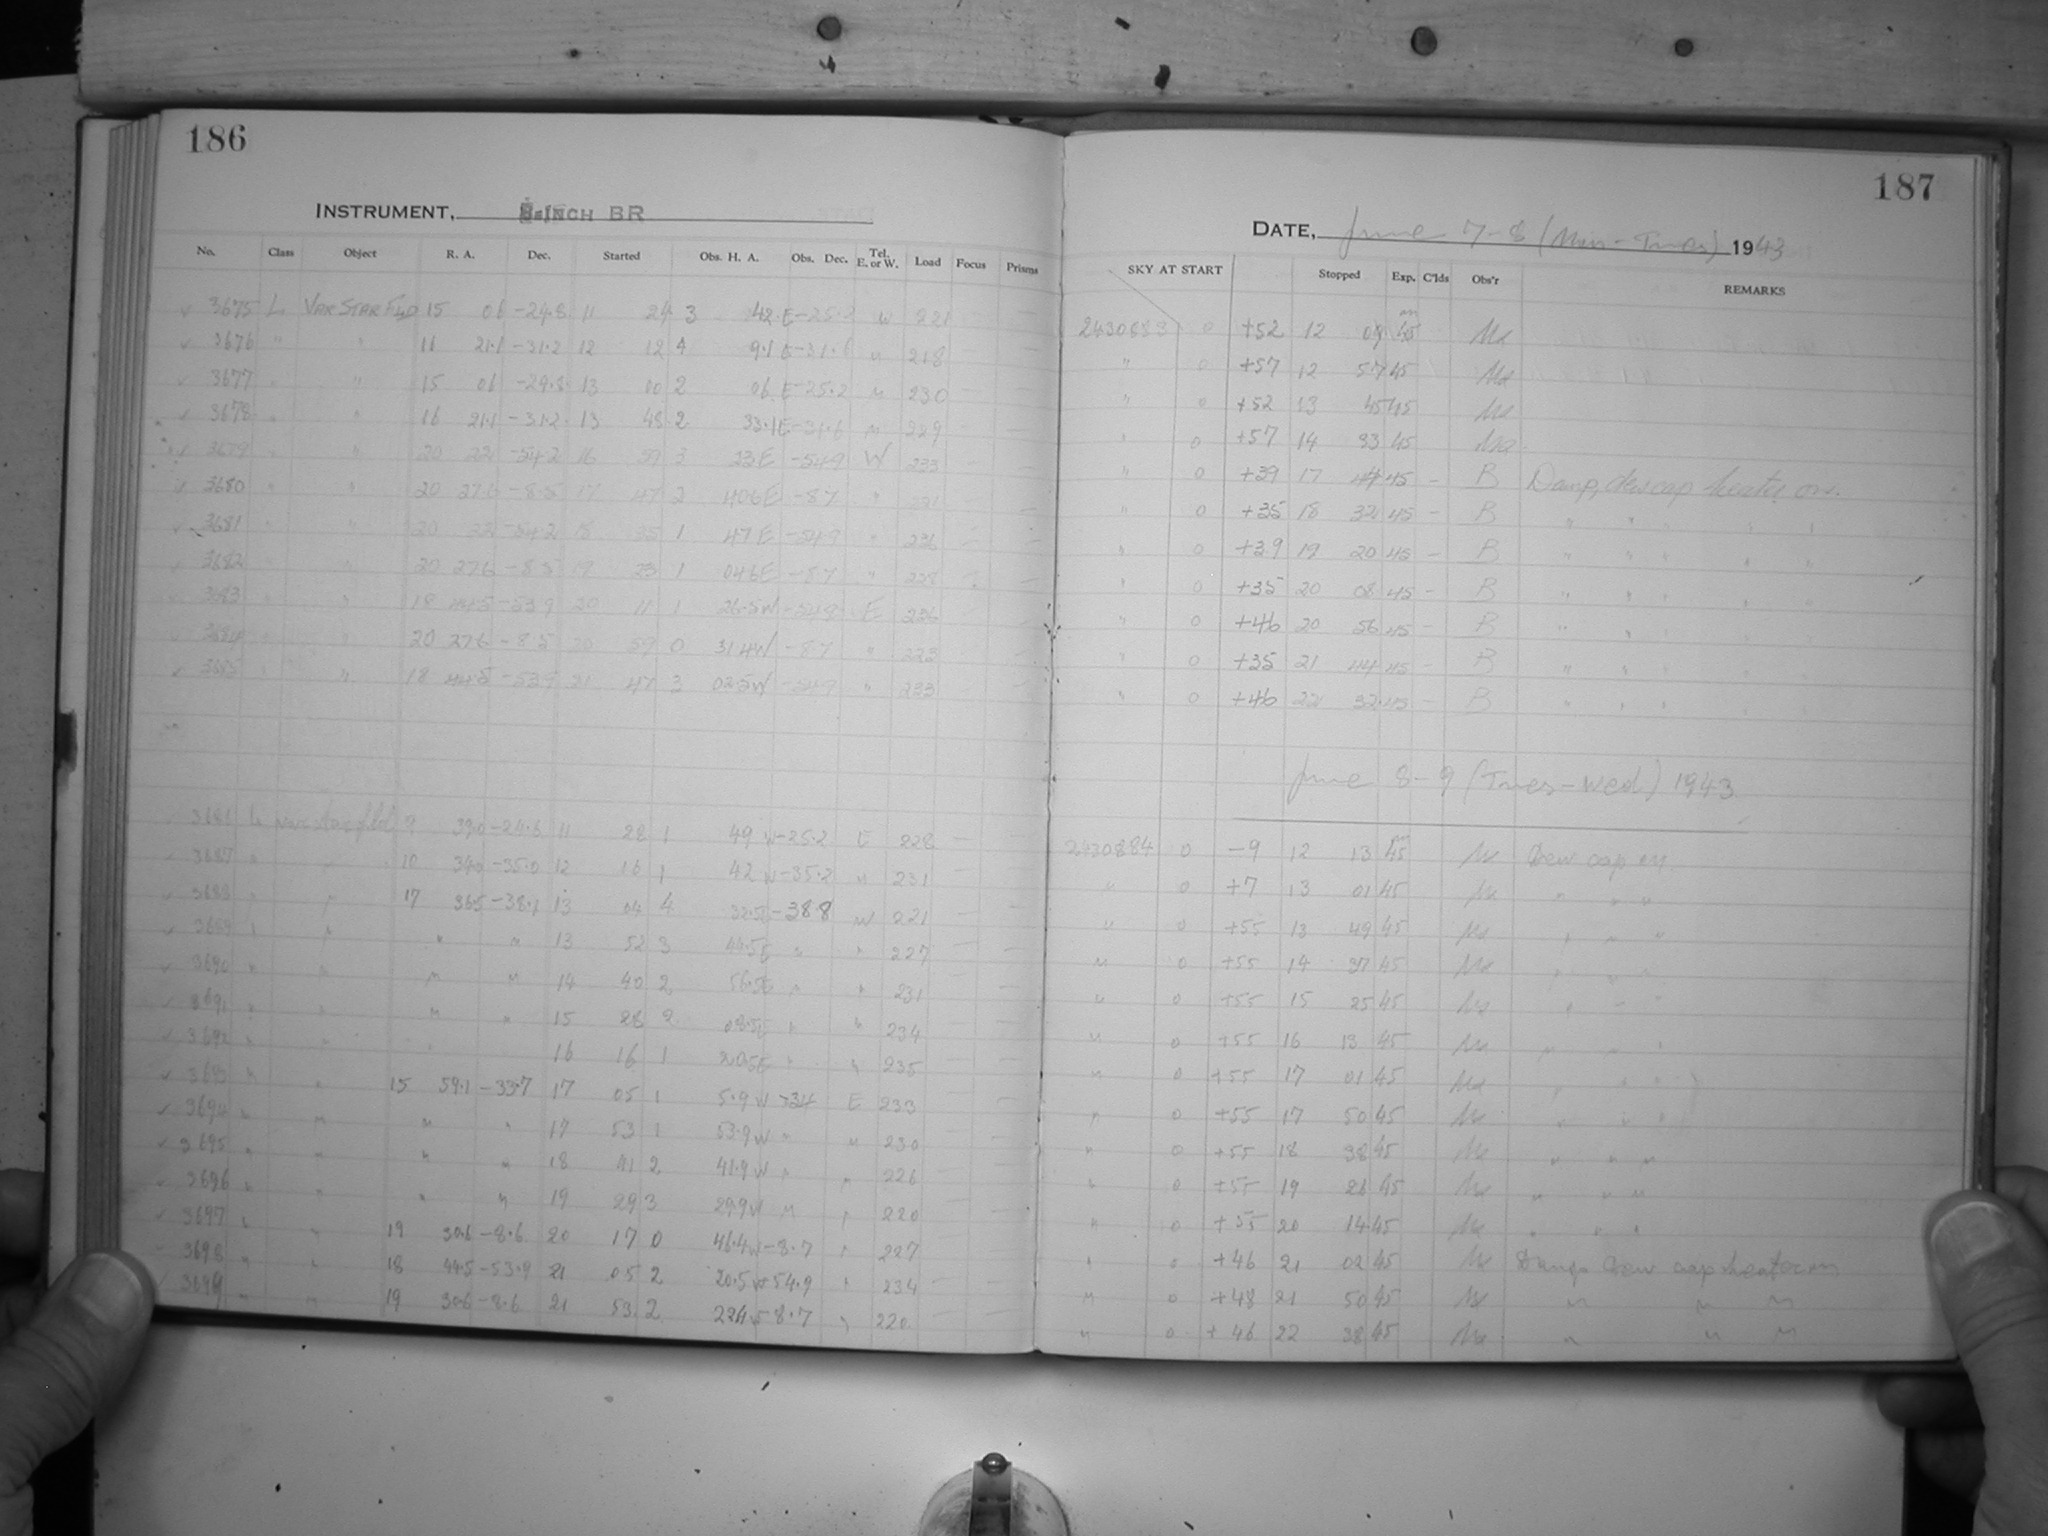 186
INSTRUMENT, 8-INCH BR
No. Class Object R. A. Dec. Started Obs. H. A. Obs. Dec. Tel. E. or W. Load Focus Prisms
3675 L VAR STAR FLD 15 06 -24.8 11 24 3 42 E -25.2 W 221
3676 " " 16 21.1 -31.2 12 12 4 9.1 E -31.6 " 218
3677 " " 15 06 -24.8 13 00 2 06 E -25.2 " 230
3678 " " 16 21.1 -31.2 13 48 2 33.1E -31.6 " 229
3679 " " 20 22 -54.2 16 59 3 23E -54.9 W 233
3680 " " 20 27.6 -8.5 17 47 2 40.6E -8.7 "
3681 " " 20 22 -54.2 18 35 1 47E -54.9 " 236
3682 " " 20 27.6 -8.5 19 23 1 04.6E -8.7 " 238
3683 " " 18 44.5 -53.9 20 11 1 26.5W -54.9 E 236
3684 " " 20 27.6 -8.5 20 59 0 31.4W -8.7 " 223
3685 " " 18 44.5 -53.9 21 47 3 02.5W -54.9 " 233
3686 L var star fld 9 39.0 -24.6 11 28 1 49 W -25.2 E 228
3687 " " 10 34.0 -35.0 12 16 1 42 W -35.2 " 231
3688 " " 17 36.5 -38.1 13 04 4 32.5E -38.8 W 221
3689 " " " " 13 52 3 44.5E " " 227
3690 " " " " 14 40 2 56.5E " " 231
3691 " " " " 15 28 2 08.5E " " 234
3692 " " 16 16 1 20.5E " " 235
3693 " " 15 59.1 -33.7 17 05 1 5.9 W -34 E 233
3694 " " " " 17 53 1 53.9W " " 230
3695 " " " " 18 41 2 41.9W " " 226
3696 " " " " 19 29 3 29.9W " " 220
3697 " " 19 30.6 -8.6 20 17 0 46.4W -8.7 " 227
3698 " " 18 44.5 -53.9 21 05 2 20.5W -54.9 " 234
3699 " " 19 30.6 -8.6 21 53 2 8.7 " 220
187
DATE, June 7-8 (Mon-Tues) 1943
SKY AT START Stopped Exp. C'lds Obs'r REMARKS
2430883 0 +52 12 09 45 m Mx
" 0 +57 12 57 45 Mx
" 0 +52 13 45 45 Mx
" 0 +57 14 33 45 Mx
" 0 +39 17 44 45 - B Damp, dew cap heater on.
" 0 +35 18 32 45 - B " " " " "
" 0 +39 19 20 45 - B " " " " "
" 0 +35 20 08 45 - B " " " " "
" 0 +46 20 56 45 - B " " " " "
" 0 +35 21 44 45 - B " " " " "
" 0 +46 22 32 45 - B " " " " "
June 8-9 (Tues-Wed) 1943
2430884 0 -9 12 13 45 m Mx Dew cap on
" 0 +7 13 01 45 Mx " " "
" 0 +55 13 49 45 Mx " " "
" 0 +55 14 37 45 Mx " " "
" 0 +55 15 25 45 Mx " " "
" 0 +55 16 13 45 Mx " " "
" 0 +55 17 01 45 Mx " " "
" 0 +55 17 50 45 Mx " " "
" 0 +55 18 38 45 Mx " " "
" 0 +55 19 26 45 Mx " " "
" 0 +55 20 14 45 Mx " " "
" 0 +46 21 02 45 Mx Damp Dew cap heater on
" 0 +48 21 50 45 Mx " " "
" 0 +46 22 38 45 Mx " " "